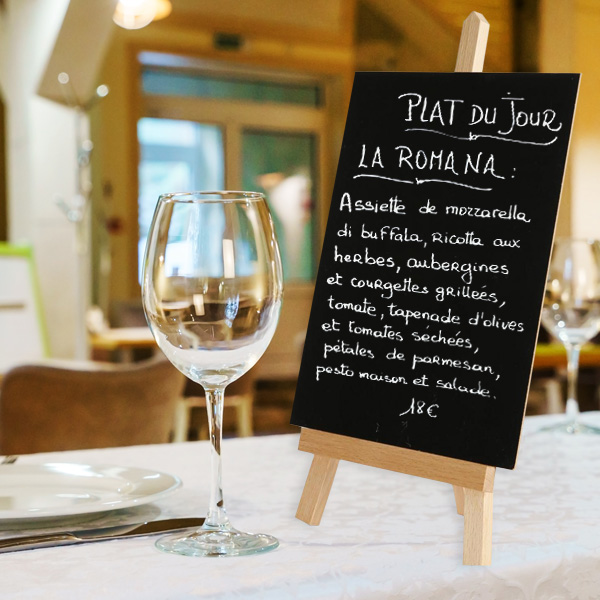 PLAT DU JOUR
LA ROMANA :
Assiette de mozzarella
di buffala, Ricotta aux
herbes, aubergines
et courgettes grilleés,
tomate, tapenade d'olives
et tomates séchées,
pétales de parmesan,
pesto maison et salade.
18€